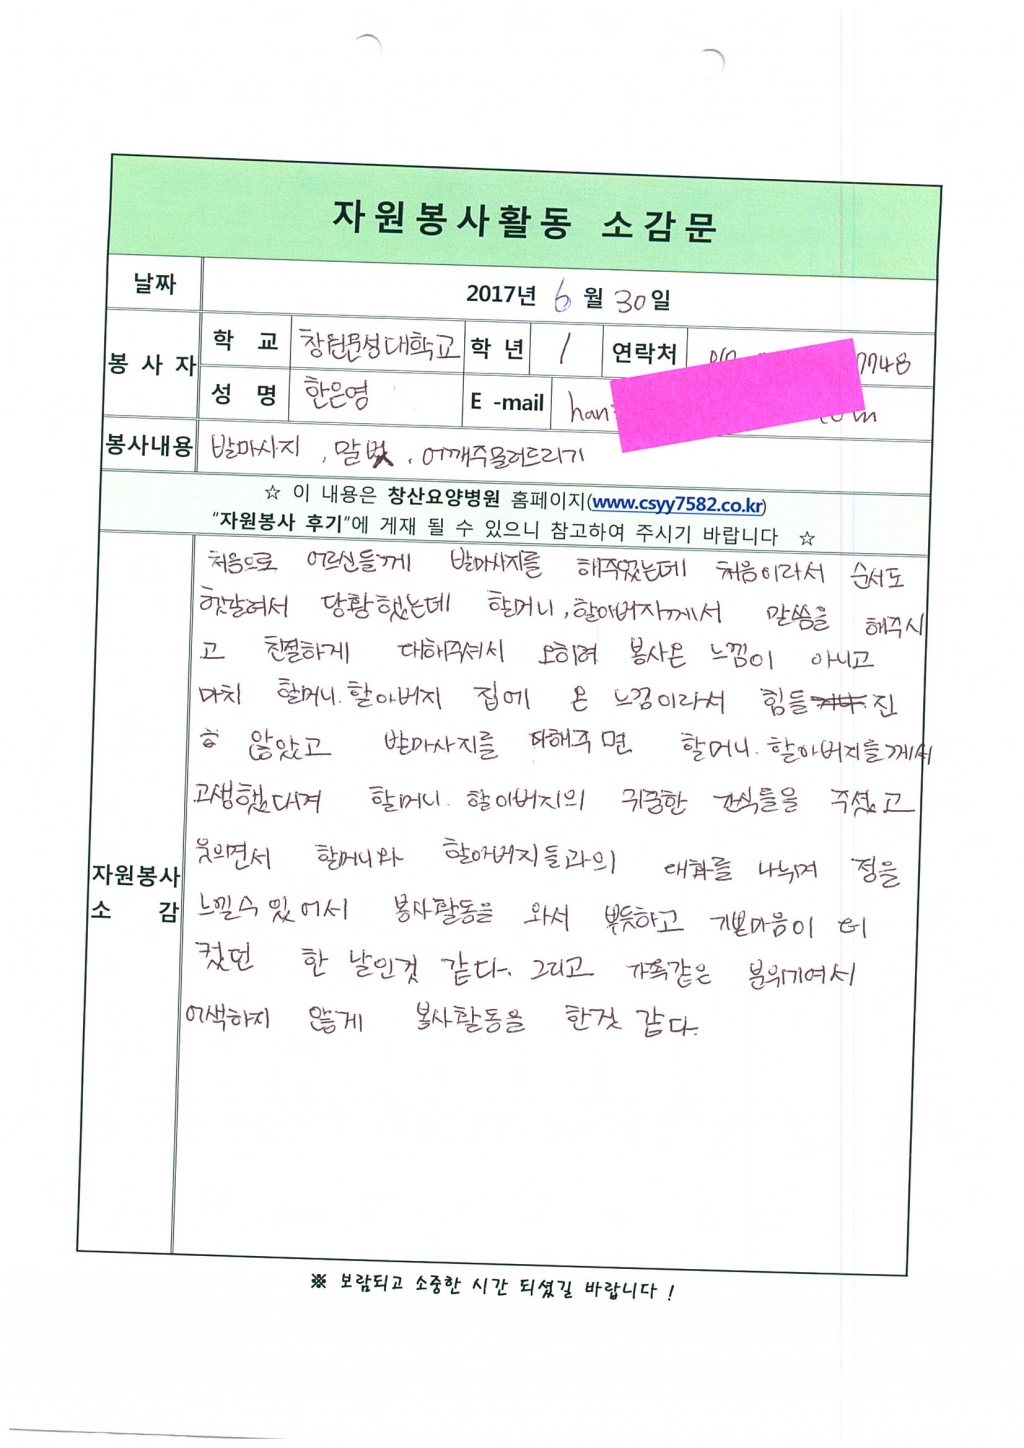 자원봉사활동 소감문
날짜 2017년 6월 30일
봉사자 학교 창원문성대학교 학년 1 연락처 7748
성명 한은영 E-mail han
봉사내용 발마사지, 말벗, 어깨주물러드리기
☆ 이 내용은 창산요양병원 홈페이지(www.csyy7582.co.kr)
"자원봉사 후기"에 게재 될 수 있으니 참고하여 주시기 바랍니다 ☆
자원봉사 소감
처음으로 어르신들께 발마사지를 해주었는데 처음이라서 순서도
헷갈려서 당황했는데 할머니, 할아버지께서 말씀을 해주시
고 친절하게 대해주셔서 오히려 봉사온 느낌이 아니고
마치 할머니. 할아버지 집에 온 느낌이라서 힘들 진
ㅎ 않았고 발마사지를 다해주면 할머니. 할아버지들께서
고생했다며 할머니. 할아버지의 귀중한 간식들을 주셨고
웃으면서 할머니와 할아버지들과의 대화를 나누며 정을
느낄수 있어서 봉사활동을 와서 뿌듯하고 기쁜마음이 더
컸던 한 날인것 같다. 그리고 가족같은 분위기여서
어색하지 않게 봉사활동을 한것 같다.
※ 보람되고 소중한 시간 되셨길 바랍니다 !